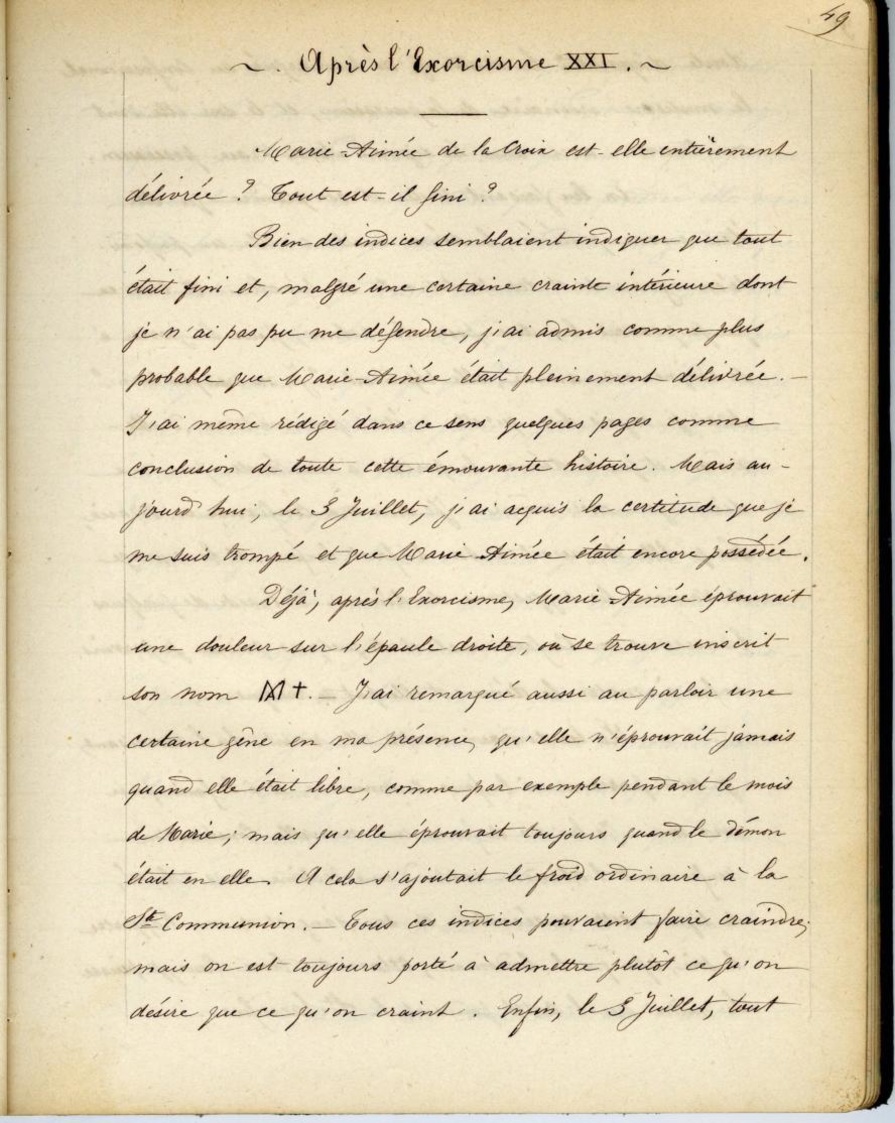 49
~. Après l'Exorcisme XXI. ~
Marie-Aimée de la Croix est-elle entièrement
délivrée ? Tout est-il fini ?
Bien des indices semblaient indiquer que tout
était fini et, malgré une certaine crainte intérieure dont
je n'ai pas pu me défendre, j'ai admis comme plus
probable que Marie-Aimée était pleinement délivrée. —
J'ai même rédigé dans ce sens quelques pages comme
conclusion de toute cette émouvante histoire. Mais au-
jourd'hui, le 3 Juillet, j'ai acquis la certitude que je
me suis trompé et que Marie Aimée était encore possédée.
Déjà, après l'Exorcisme, Marie-Aimée éprouvait
une douleur sur l'épaule droite, où se trouve inscrit
son nom M +. — J'ai remarqué aussi au parloir une
certaine gêne en ma présence, qu'elle n'éprouvait jamais
quand elle était libre, comme par exemple pendant le mois
de Marie ; mais qu'elle éprouvait toujours quand le démon
était en elle. A cela s'ajoutait le froid ordinaire à la
Ste Communion. — Tous ces indices pouvaient faire craindre;
mais on est toujours porté à admettre plutôt ce qu'on
désire que ce qu'on craint. Enfin, le 3 Juillet, tout